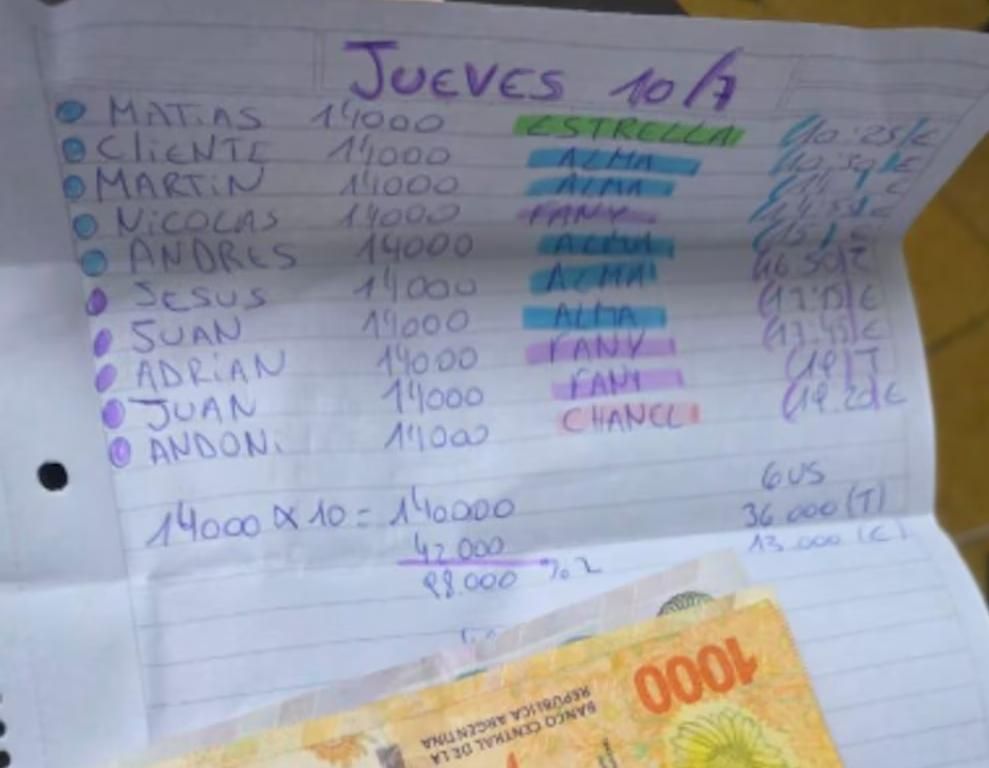 JUEVES 10/7
MATIAS 14000 ESTRELLA (10:25)E
CLIENTE 14000 ALMA
MARTIN 14000 ALMA
NICOLAS 14000 FANY
ANDRES 14000 ALMA
JESUS 14000 ALMA (16:50)T
JUAN 14000 ALMA (17:15)E
ADRIAN 14000 FANY (17:45)E
JUAN 14000 FANY (19)T
ANDONI 14000 CHANEL (19:20)E
14000 X 10 = 140.000
42.000
98.000 %2
GUS
36.000 (T)
13.000 (E)
1000
BANCO CENTRAL DE LA
REPÚBLICA ARGENTINA